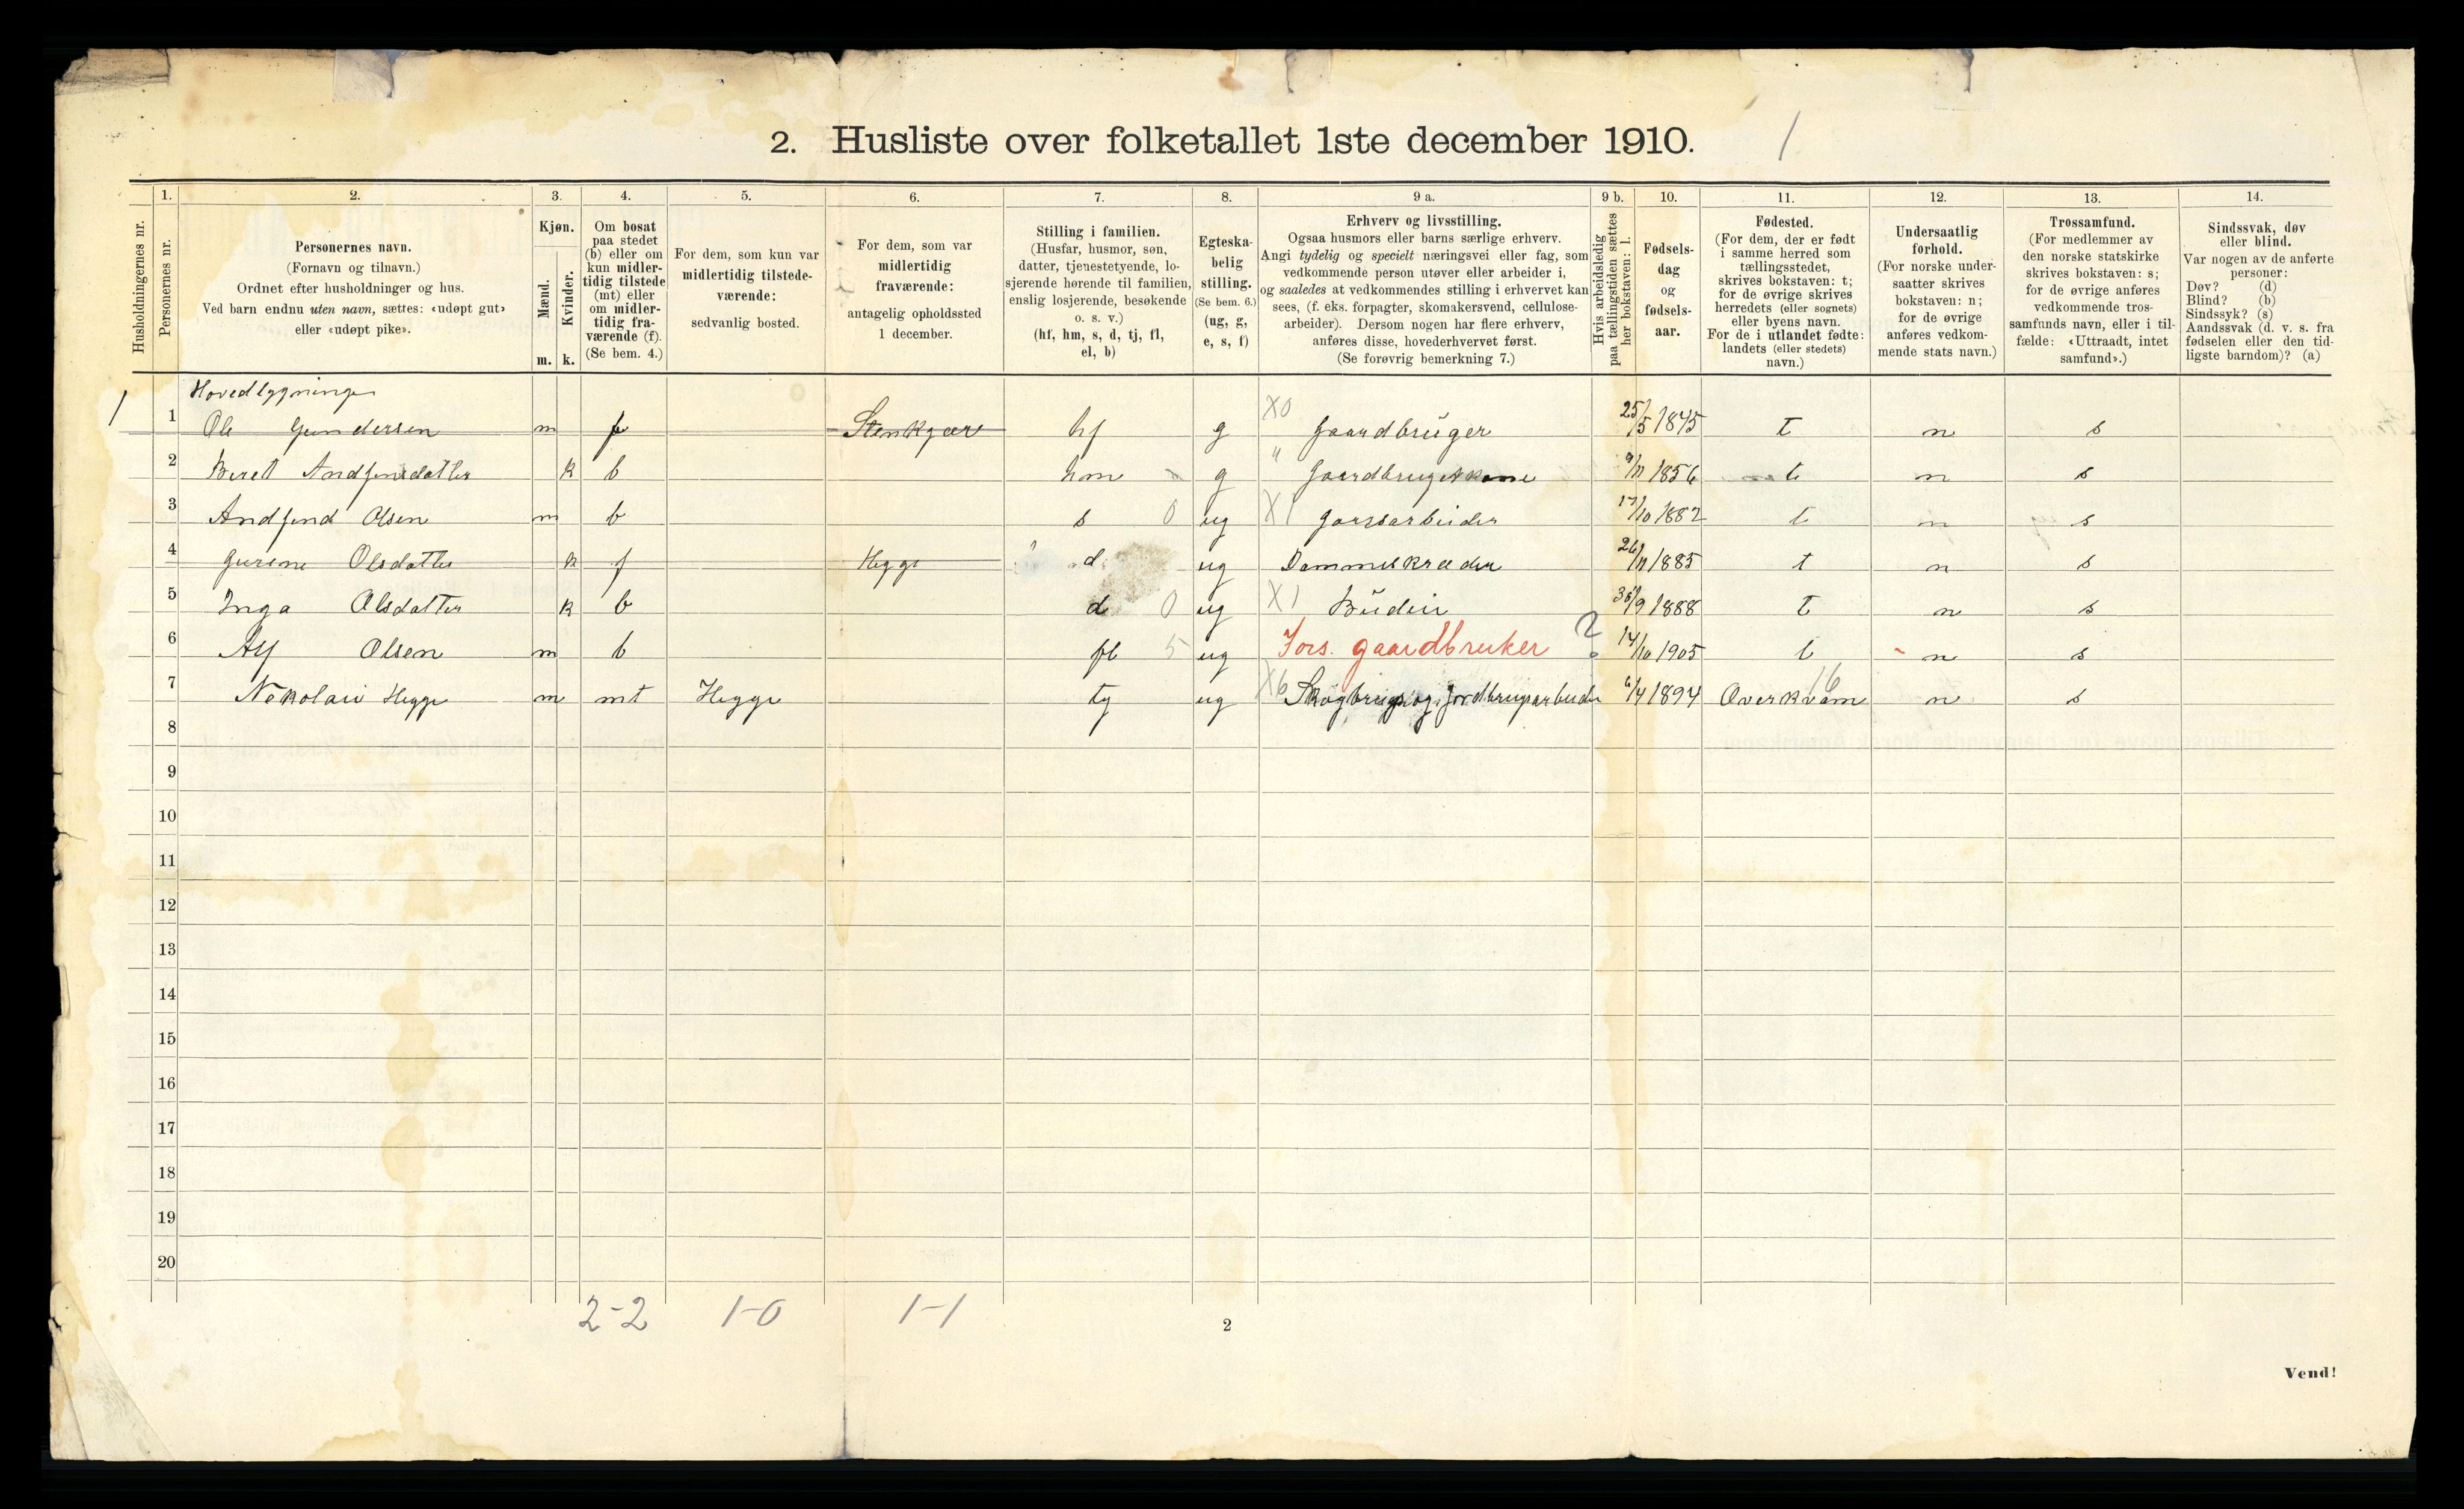 2. Husliste over folketallet 1ste december 1910. 1
1. 2. 3. 4. 5. 6. 7. 8. 9 a. 9 b. 10. 11. 12. 13. 14.
Husholdningernes nr.
Personernes nr.
Personernes navn.
(Fornavn og tilnavn.)
Ordnet efter husholdninger og hus.
Ved barn endnu uten navn, sættes: «udøpt gut»
eller «udøpt pike».
Kjøn.
Mænd.
Kvinder.
m. k.
Om bosat
paa stedet
(b) eller om
kun midler-
tidig tilstede
(mt) eller
om midler-
tidig fra-
værende (f).
(Se bem. 4.)
For dem, som kun var
midlertidig tilstede-
værende:
sedvanlig bosted.
For dem, som var
midlertidig
fraværende:
antagelig opholdssted
1 december.
Stilling i familien.
(Husfar, husmor, søn,
datter, tjenestetyende, lo-
sjerende hørende til familien,
enslig losjerende, besøkende
o. s. v.)
(hf, hm, s, d, tj, fl,
el, b)
Egteska-
belig
stilling.
(Se bem. 6.)
(ug, g,
e, s, f)
Erhverv og livsstilling.
Ogsaa husmors eller barns særlige erhverv.
Angi tydelig og specielt næringsvei eller fag, som
vedkommende person utøver eller arbeider i,
og saaledes at vedkommendes stilling i erhvervet kan
sees, (f. eks. forpagter, skomakersvend, cellulose-
arbeider). Dersom nogen har flere erhverv,
anføres disse, hovederhvervet først.
(Se forøvrig bemerkning 7.)
Hvis arbeidsledig
paa tællingstiden sættes
her bokstaven: l.
Fødsels-
dag
og
fødsels-
aar.
Fødested.
(For dem, der er født
i samme herred som
tællingsstedet,
skrives bokstaven: t;
for de øvrige skrives
herredets (eller sognets)
eller byens navn.
For de i utlandet fødte:
landets (eller stedets)
navn.)
Undersaatlig
forhold.
(For norske under-
saatter skrives
bokstaven: n;
for de øvrige
anføres vedkom-
mende stats navn.)
Trossamfund.
(For medlemmer av
den norske statskirke
skrives bokstaven: s;
for de øvrige anføres
vedkommende tros-
samfunds navn, eller i til-
fælde: «Uttraadt, intet
samfund».)
Sindssvak, døv
eller blind.
Var nogen av de anførte
personer:
Døv? (d)
Blind? (b)
Sindssyk? (s)
Aandssvak (d. v. s. fra
fødselen eller den tid-
ligste barndom)? (a)
Hovedbygninge
1 1 Ole Gundersen m f Stenkjær hf g X0 Gaardbruger 25/5 1845 t n s
2 Beret Andfinsdatter k b hm g " Gaardbrugerkone 9/11 1856 t n s
3 Andfind Olsen m b s 0 ug X1 Gaarsarbeider 17/10 1882 t n s
4 Gurine Olsdatter k f Hegge d ug Dammeskræder 26/11 1885 t n s
5 Inga Olsdatter k b d 0 ug X1 Budeie 30/9 1888 t n s
6 Alf Olsen m b fl 5 ug Fors. gaardbruker ? 14/10 1905 t n s
7 Nekolai Hegge m mt Hegge tj ug X6 Skogbrugs og jordbrugsarbeider 6/4 1894 Overkvam 16 n s
8
9
10
11
12
13
14
15
16
17
18
19
20
2-2 1-0 1-1
2
Vend!